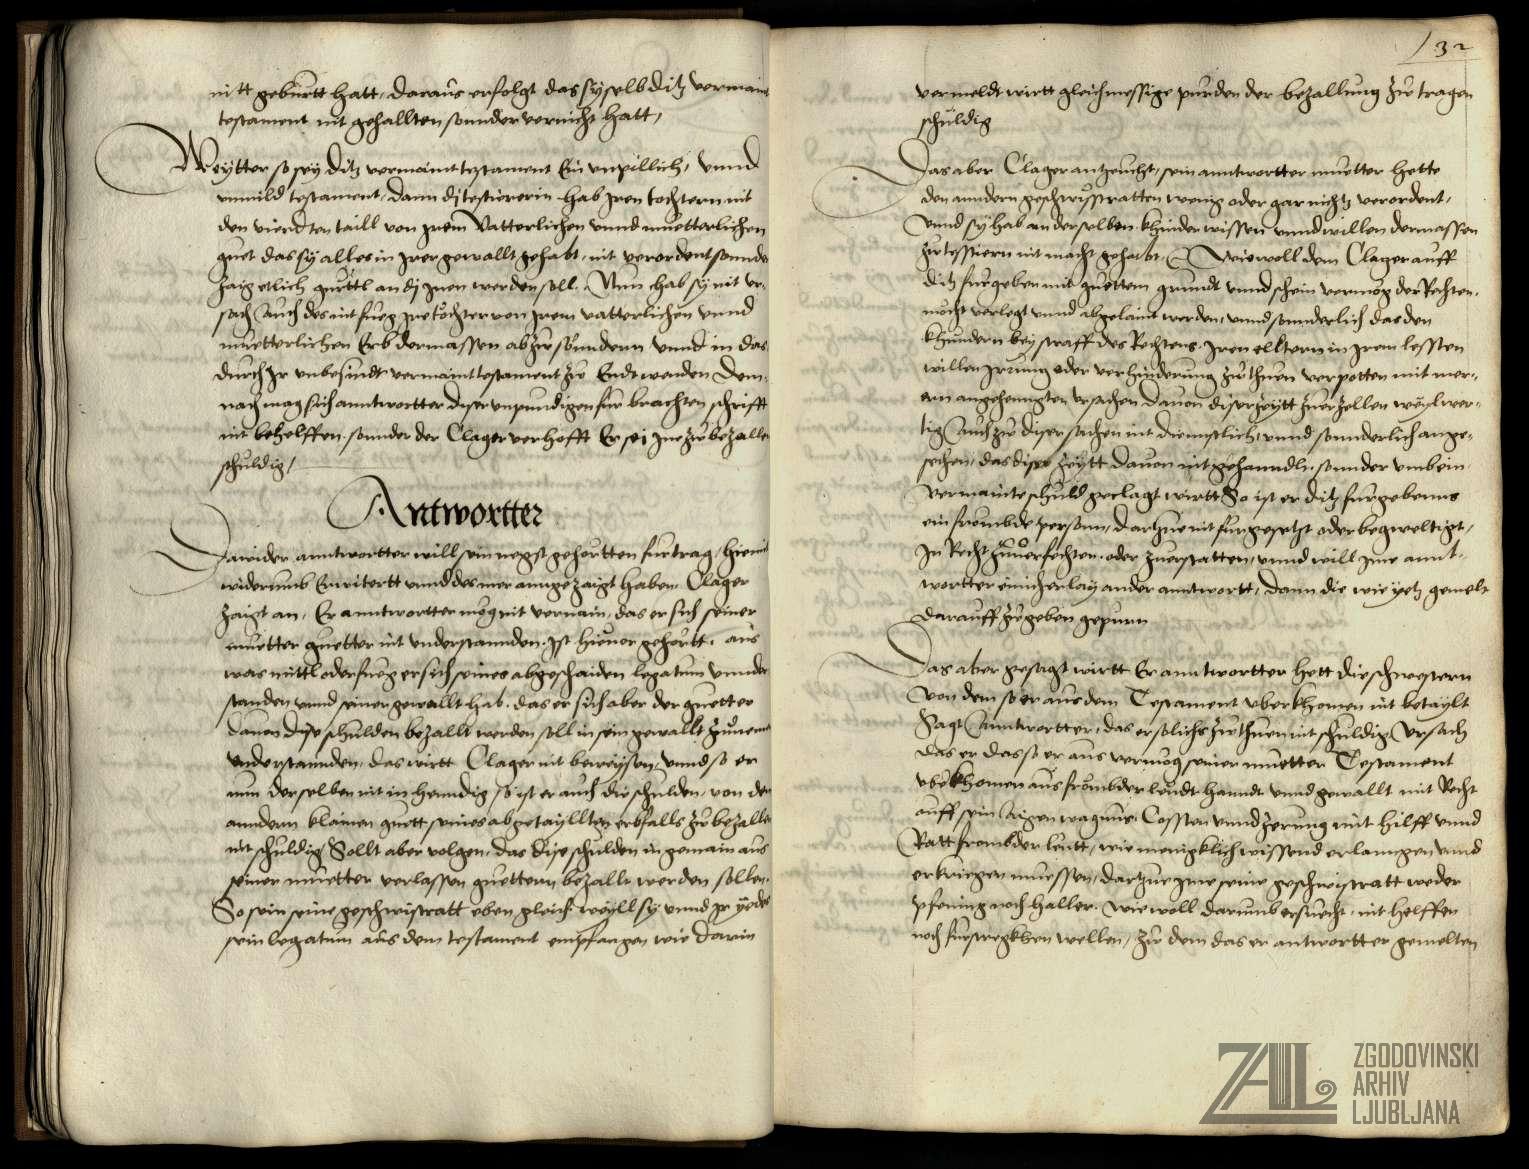 nitt gebürtt hatt, daraus erfolgt das sy selb ditz vermaint
testament nit gehallten sonnder vernicht hatt,
Weytter so sey ditz vermaint testament Ein unpillich, unnd
unmild testament, dann di testiererin hab Jren tochtern nit
den vierdten taill von Jrem Vatterlichen unnd muetterlichen
guet das sy alles in Jrer gewallt gehabt, nit verordent sonnder
zaig etlich güettl an di Jnen werden soll. Nun hab sy nit ur-
sach Auch des nit fueg Jre töchter von Jrem vatterlichen unnd
muetterlichen Erb dermassen abzusöndern unnd in das
durch Jr unbesindt vermaint testament zu Endt wenden, dem-
nach mag sich anntwortter diser unpundigen fur brachten schrifft
nit behelffen, sonnder der Clager verhofft Er sei Jme zu bezallen
schuldig,
Antwortter
Dawider anntwortter will sein negst gehörtten furtrag, hiemit
widerumb Erwitertt unnd des mer anngezaigt haben, Clager
zaigt an, Er anntwortter mög nit vernain, das er sich seiner
muetter guetter nit understannden, Jst hieuor gehörtt, aus
was mittl oder fueg er sich seines abgeschaiden legatum unnder
standen unnd seiner gewallt hab, das er sich aber der guetter
dauon dise schulden bezallt werden soll in sein gewallt zunemen
understannden, das wirtt Clager nit beweysen, unnd so er
nun derselben nit in henndig, so ist er auch die schulden, von den
anndern klainen guett seines abgetayllten erbfalls zu bezallen
nit schuldig, Sollt aber volgen, das dise schulden in gemain aus
seiner muetter verlassen guettern bezallt werden sollen,
So sein seine geschwistratt eben gleich weyll sy unnd Jr yedes
sein legatum aus dem testament empfangen wie darin
132
vermeldt wirtt gleichmessige purden der bezallung zu tragen
schuldig
Das aber Clager antzeucht, sein anntwortter muetter hette
den anndern geschwistratten wenig oder gar nichtz verordent,
unnd sy hab an derselben khinder wissen unnd willen dermassen
zu testiern nit macht gehabt, Wiewoll dem Clager auff
ditz furgeben mit guettem grundt unnd schein vermög der Rechten,
möcht verlegt unnd abgelaint werden, unnd sonnderlich das den
khindern bey straff des Rechtens, Jren elltern in Jrem lessten
willen Jrrung oder verhinderung zuthuen verpotten mit mer-
ern angehenngten ursachen dauon diser zeytt zuerzellen weyl wer-
tig Auch zu diser sachen nit dienstlich, unnd sonnderlich ange-
sechen, das diser zeytt dauon nit gehanndlt, sonnder umb ein
vermainte schuld geclagt wirtt So ist er ditz furgebenns
ein frömbde person, dartzue nit furgesetzt oder begweltigt,
Jn Recht zuuerfechten, oder zuerstatten, unnd will Jme annt-
wortter ainicherlay ander anntwortt, dann die wie yetz gemelt
darauff zugeben gepurn
Das aber gesagt wirtt Er anntwortter hett die schwestern
von dem so er aus dem Testament uberkhomen nit betaylt
Sagt Anntwortter, das er solichs zu thuen nit schuldig, Ursach
das er das so er aus vermög seiner muetter Testament
uberkhomen aus frömbder leudt hanndt unnd gewallt mit Recht
auff sein Aigen wagnus, Cossten unnd zerung mit hilff unnd
Ratt frembder leutt, wie menigklich wissend erlanngen unnd
erkriegen muessen, dartzue Jme seine geschwistratt weder
pfening noch haller, wiewoll darumb ersuecht, nit helffen
noch furstregkhen wellen, zu dem das er antwortter gemelten
ZAL
ZGODOVINSKI
ARHIV
LJUBLJANA